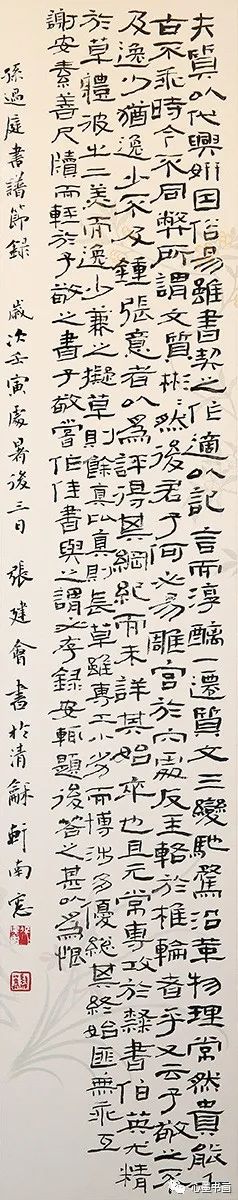 夫質以代興妍因俗易雖書契之作適以記言而淳醨一遷質文三變馳騖沿革物理常然貴能
古不乖時今不同弊所謂文質彬彬然後君子何必易雕宮於穴處反玉輅於椎輪者乎又云子敬之不
及逸少猶逸少不及鍾張意者以爲評得其綱紀而未詳其始卒也且元常專攻於隸書伯英尤精
於草體彼之二美而逸少兼之擬草則餘真比真則長草雖專工小劣而博涉多優總其終始匪無乖互
謝安素善尺牘而輕於子敬之書子敬嘗作佳書與之謂必存錄安輒題後答之甚以爲恨
孫過庭書譜節錄 歲次壬寅處暑後三日 張建會書於清龢軒南窓